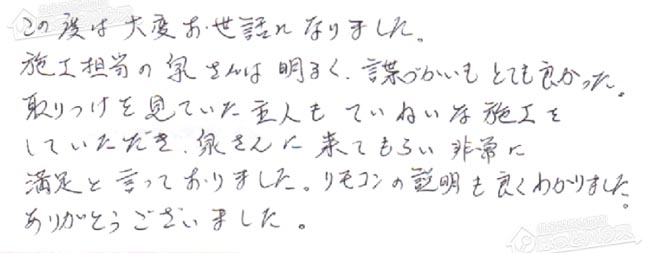 この度は大変お世話になりました。
施工担当の泉さんは明るく、言葉づかいもとても良かった。
取りつけを見ていた主人もていねいな施工を
していただき、泉さんに来てもらい非常に
満足と言っておりました。リモコンの説明も良くわかりました。
ありがとうございました。